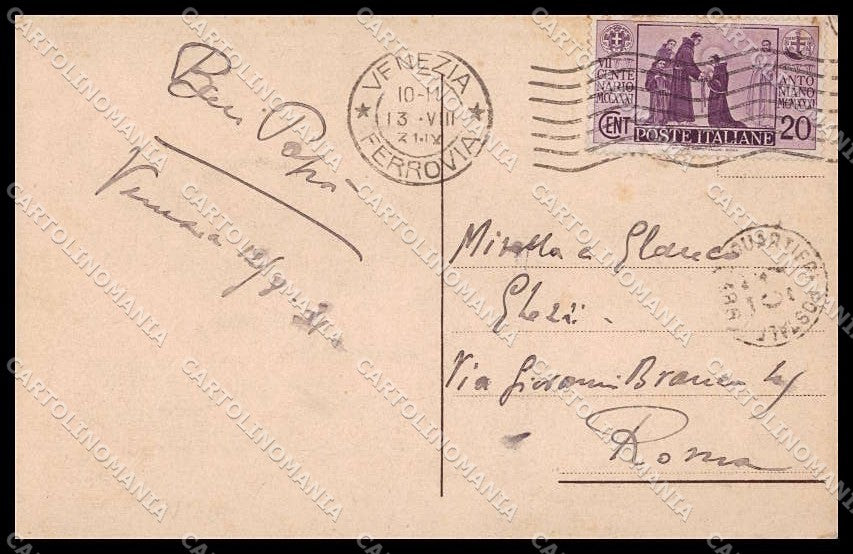 Baci Papà
Venezia 12/8
VENEZIA
10-11
13 ·VIII
31·IX
FERROVIA
VII
CENTE
NARIO
MCCXXXI
ANTO
NIANO
MCMXXXI
CENT
POSTE ITALIANE
20
Mirella e Glauco
Ghezzi
Via Giovanni Branca
Roma
CARTOLINOMANIA